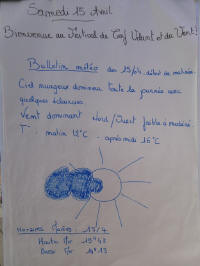 Samedi 15 Avril
Bienvenue au Festival du Cerf Volant et du Vent!
Bulletin météo des 15/04 début de matinée:
Ciel nuageux dominera toute la journée avec
quelques éclaircies.
Vent dominant Nord/Ouest faible à modéré.
T°: matin 12°C - après midi 16°C
Horaires Marées: 15/4
Haute Mer 19H43
Basse Mer 14H13